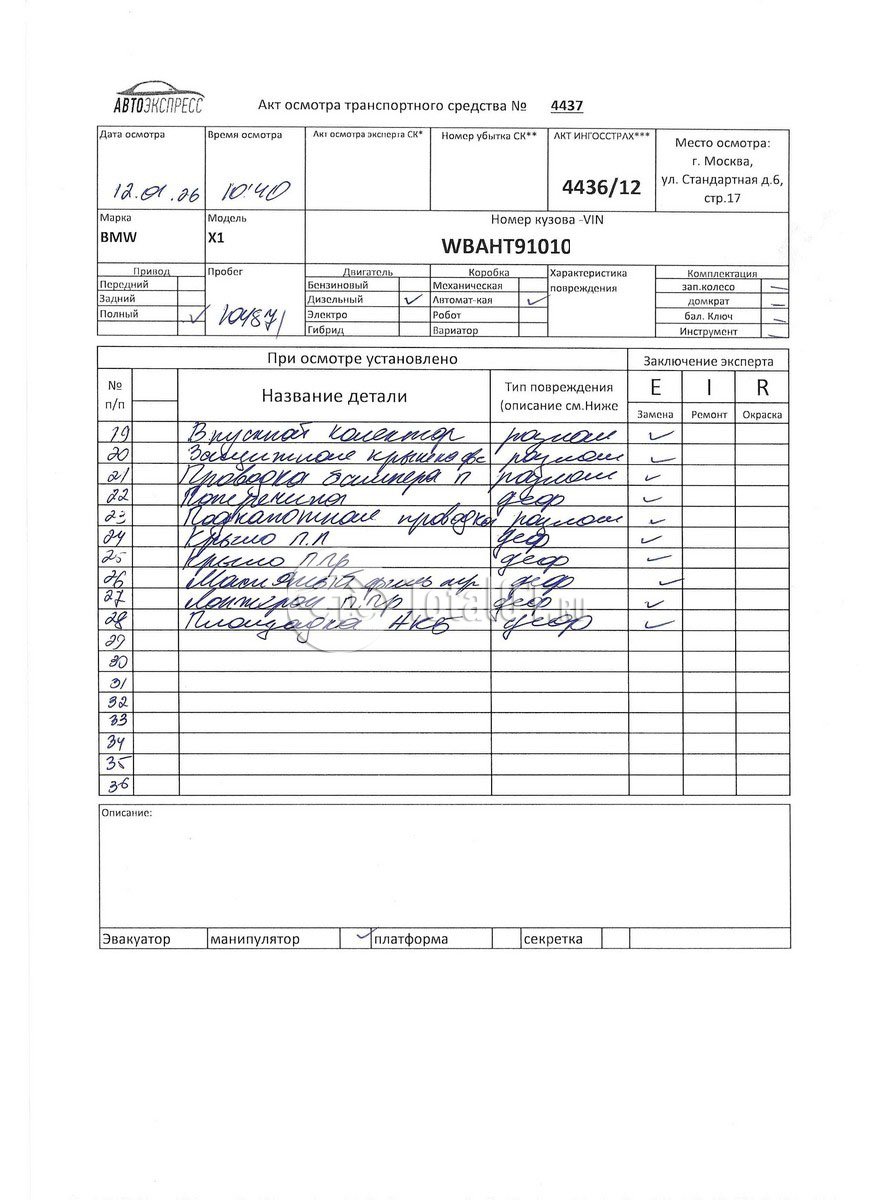 АВТОЭКСПРЕСС
Акт осмотра транспортного средства № 4437
Дата осмотра Время осмотра Акт осмотра эксперта СК* Номер убытка СК** АКТ ИНГОССТРАХ*** Место осмотра:
г. Москва,
ул. Стандартная д.6,
стр.17
12.01.26 10:40 4436/12
Марка Модель Номер кузова -VIN
BMW X1 WBAHT91010
Привод Пробег Двигатель Коробка Характеристика повреждения Комплектация
Передний Бензиновый Механическая зап.колесо
Задний Дизельный Автомат-кая домкрат
Полный 104871 Электро Робот бал. Ключ
Гибрид Вариатор Инструмент
При осмотре установлено Заключение эксперта
№ п/п Название детали Тип повреждения (описание см.Ниже E I R
Замена Ремонт Окраска
19 Впускной колектор разлом
20 Защитная крышка двс разлом
21 Проводка бампера п разлом
22 деф
23 Подкапотная проводка разлом
24 Крыло П.П деф
25 Крыло П Пр деф
26 деф
27 Лонжерон П Пр деф
28 Площадка АКБ деф
29
30
31
32
33
34
35
36
Описание:
Эвакуатор манипулятор платформа секретка
Total01.ru